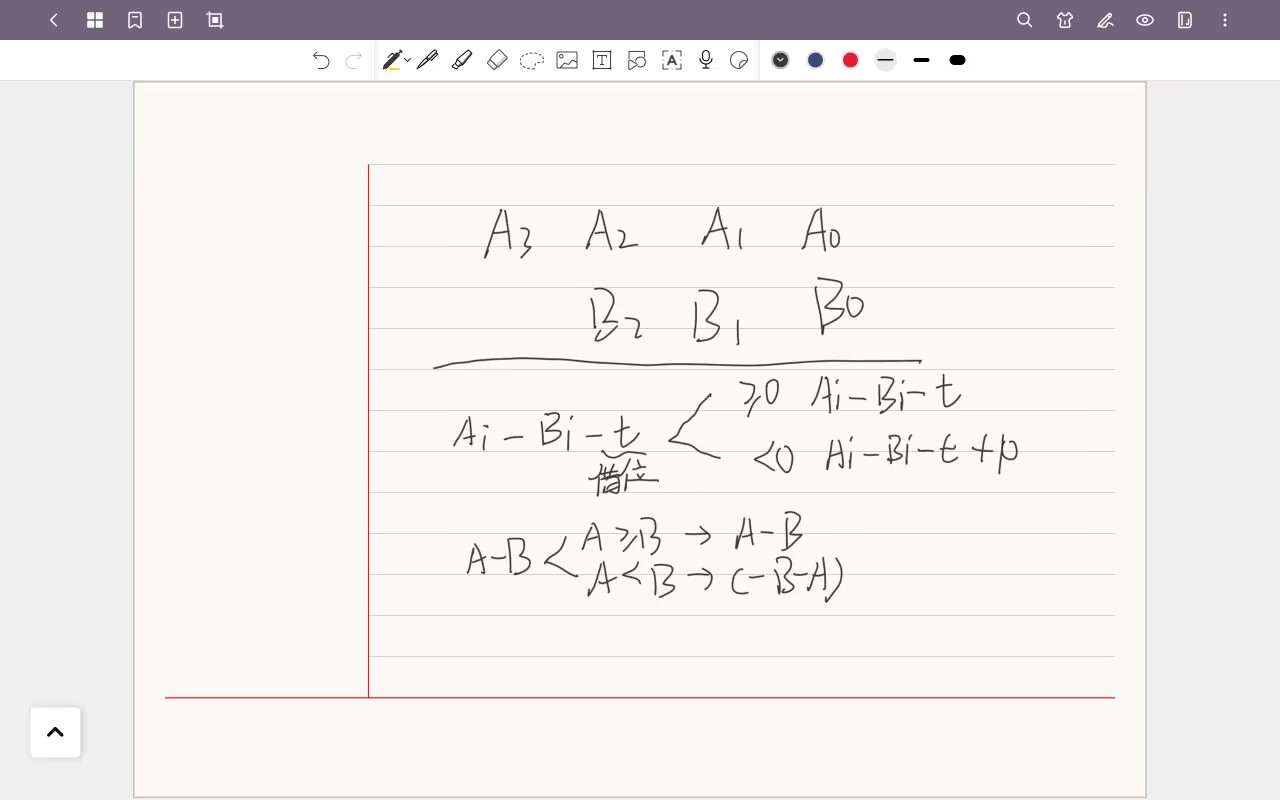 A3 A2 A1 A0
B2 B1 B0
Ai - Bi - t < ≥0 Ai - Bi - t
<0 Ai - Bi - t + p
借位
A - B < A ≥ B → A - B
A < B → (-B-A)